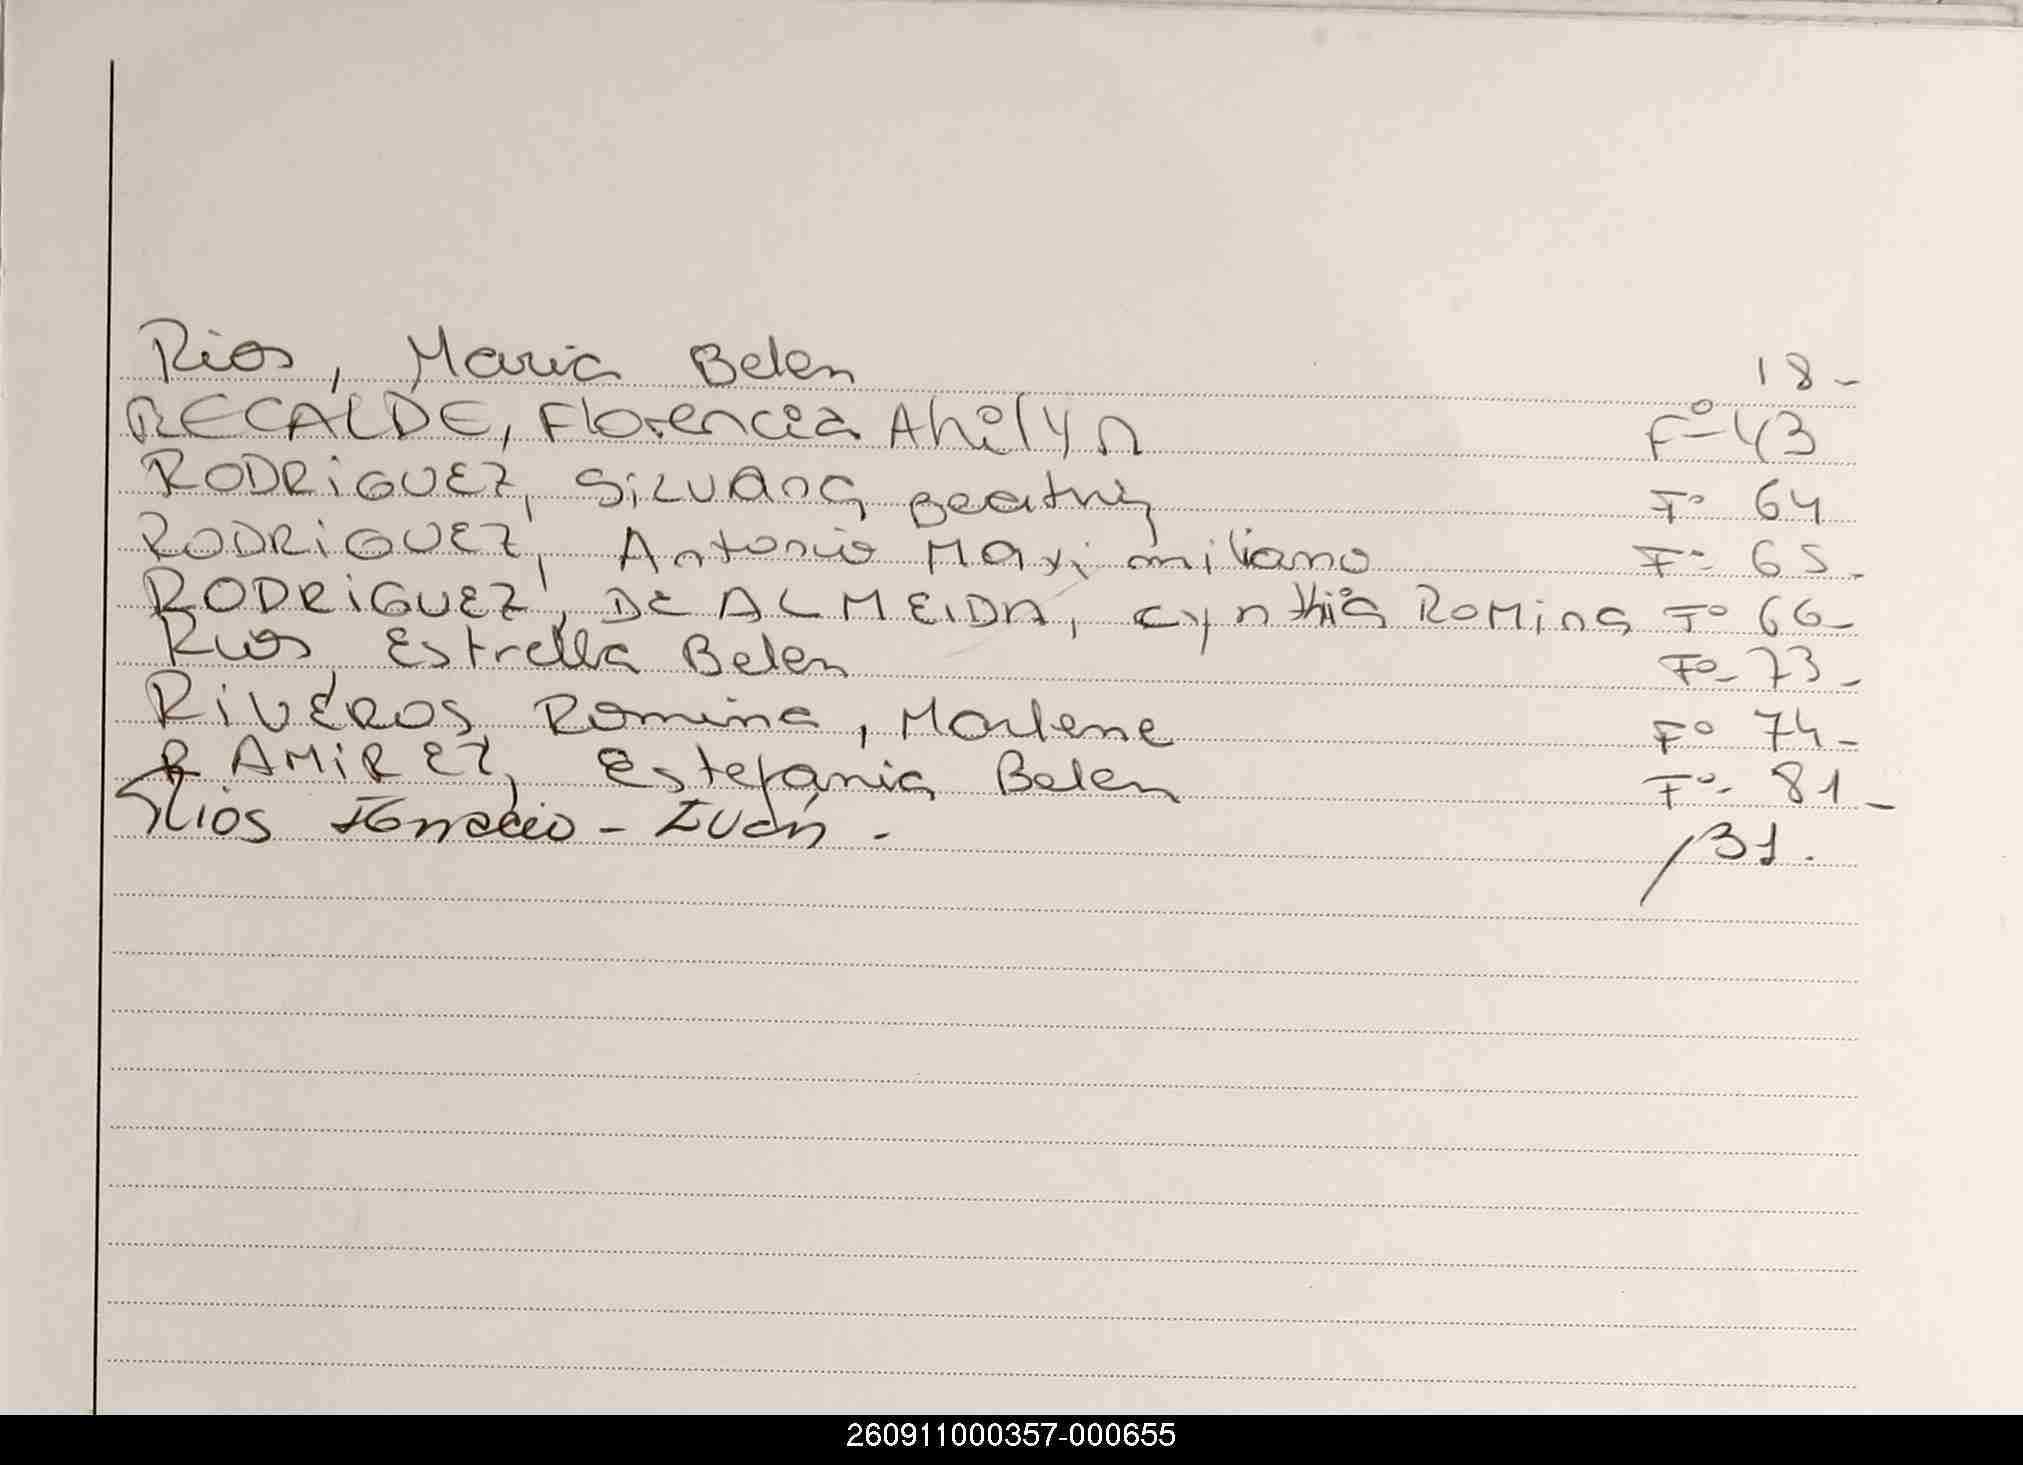 Rios, Maria Belen 18-
RECALDE, Florencia Ahilyn Fº 43
RODRiGUEZ, SiLVAnа Beatriz Fº 64
RODRiGUEZ, Antonio Maximiliano Fº 65-
RODRiGUEZ, DE ALMEIDA, cynthia ROMina Fº 66-
Rios, Estrella Belen Fº- 73-
RiVEROS Romina, Marlene Fº 74-
RAMiREZ, Estefania Belen Fº- 81-
Rios Ignacio - Iván. /31.
260911000357-000655